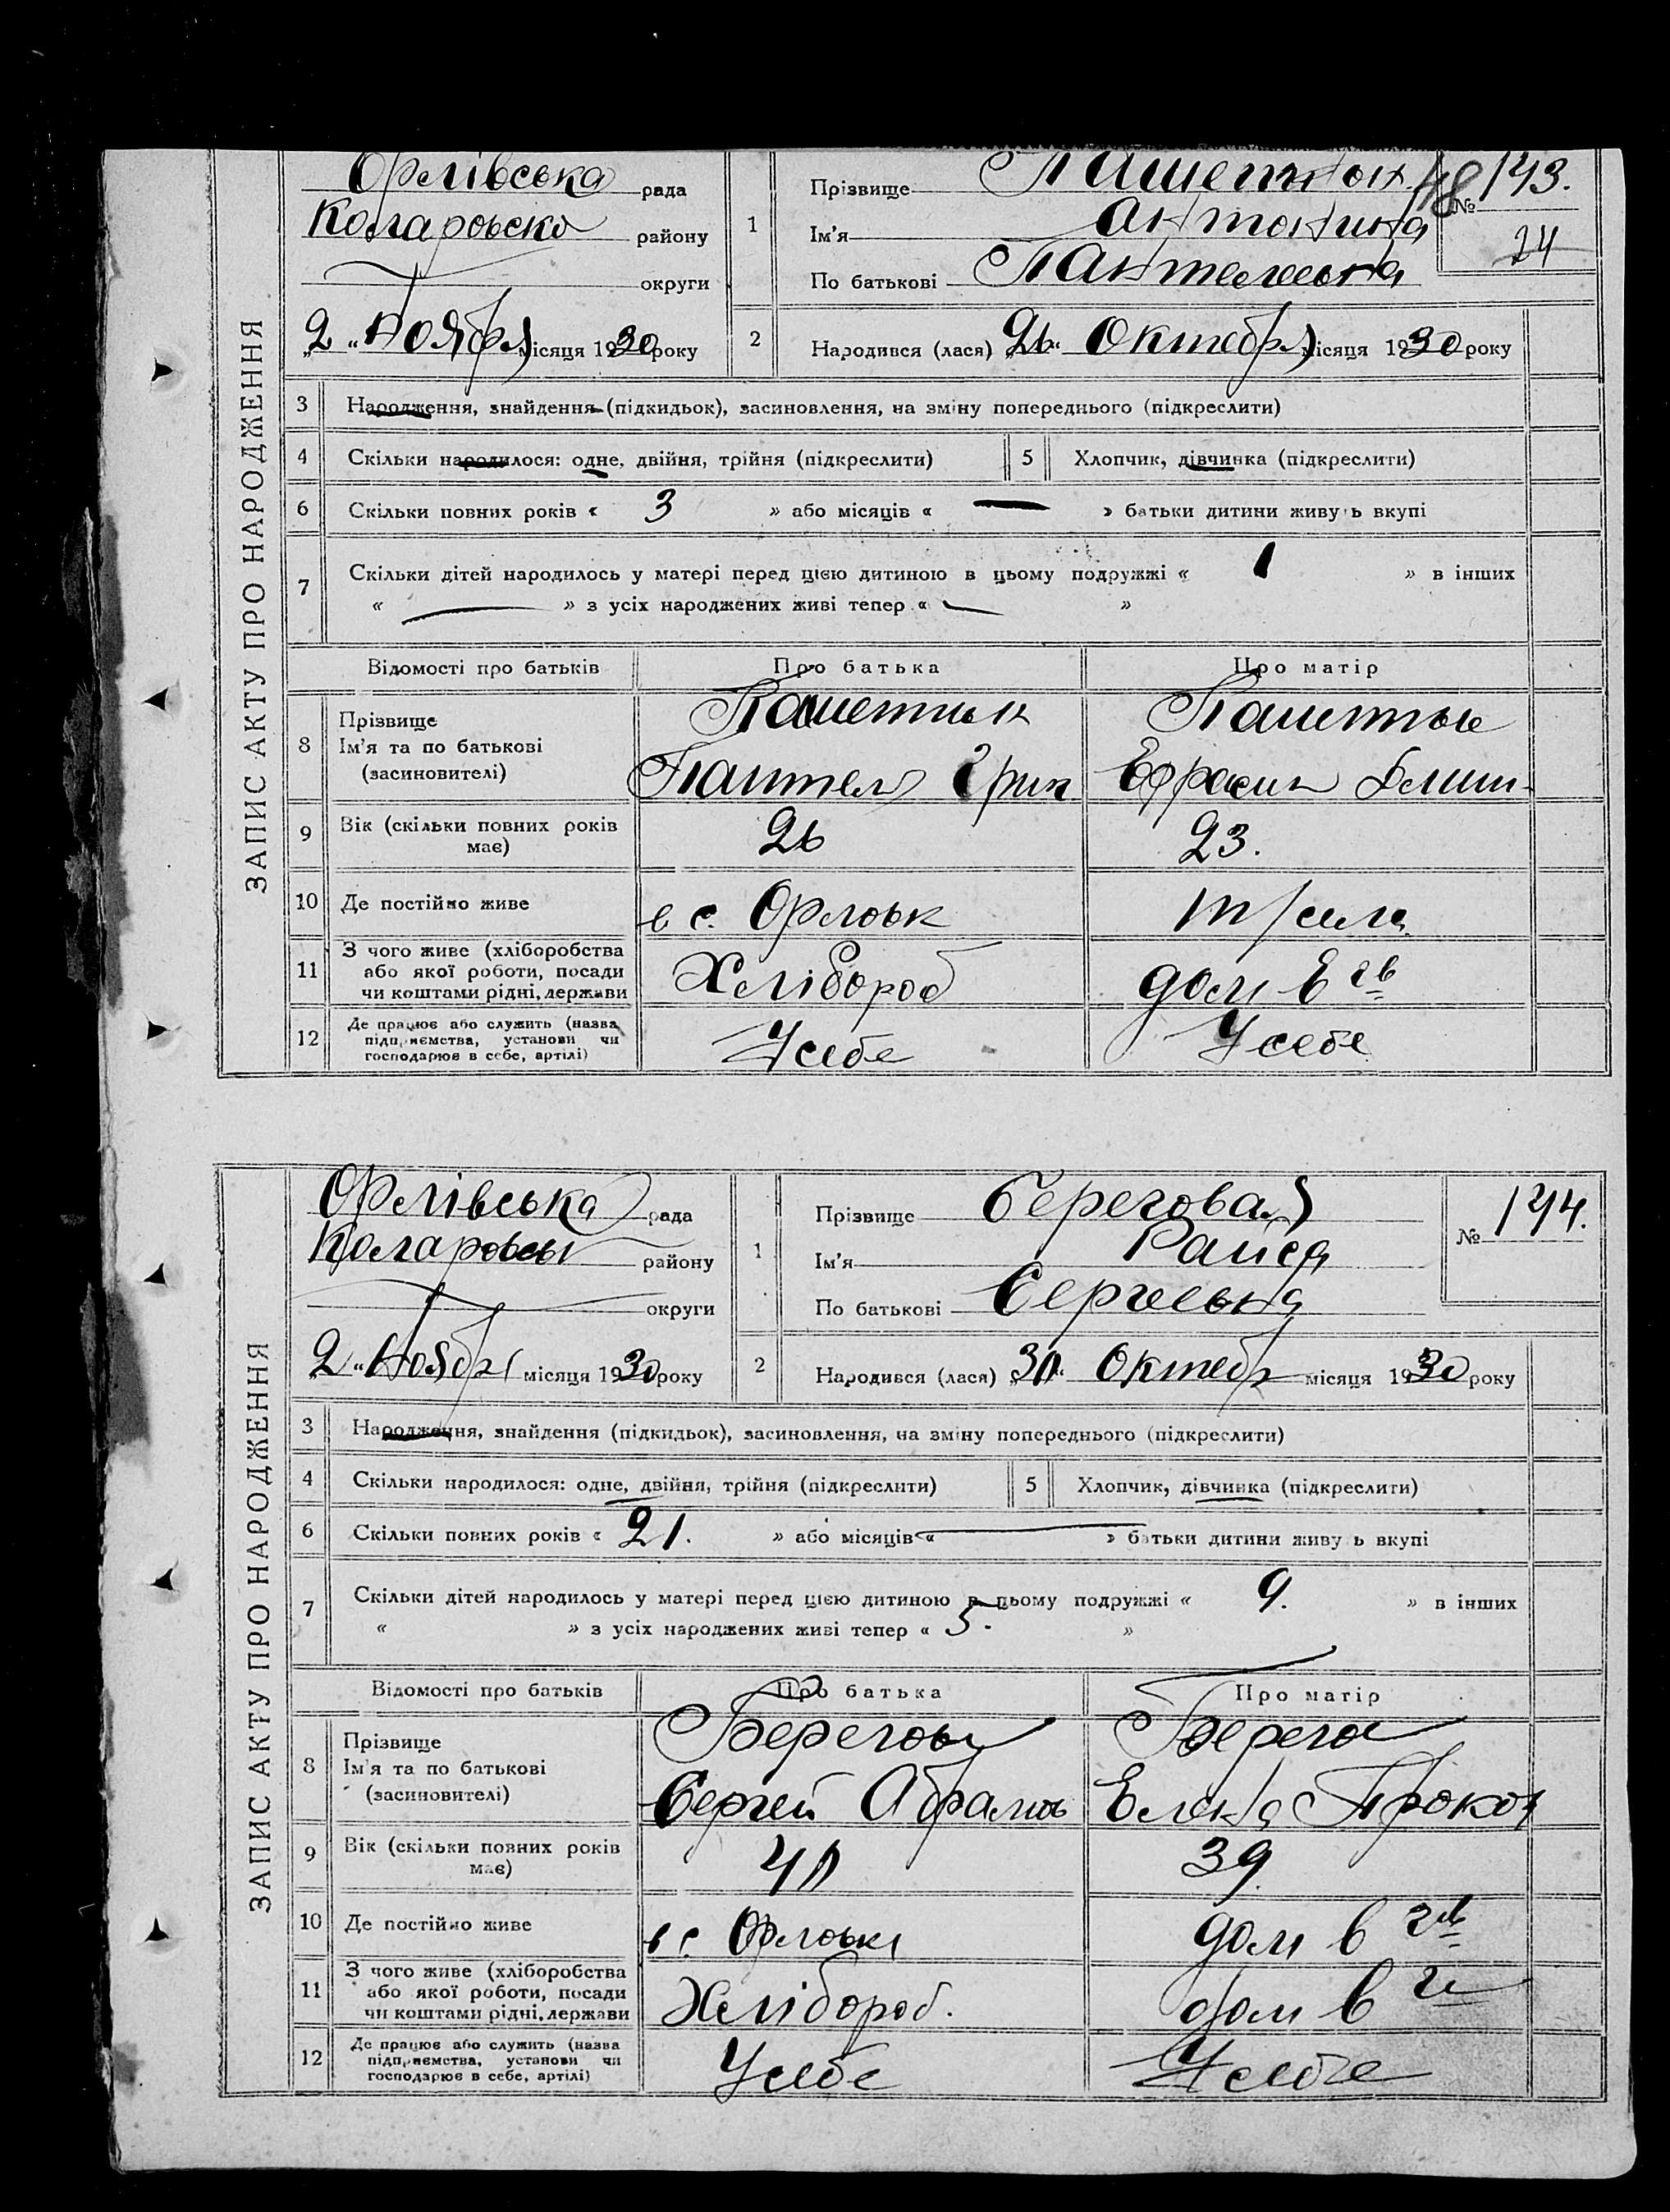 ЗАПИС АКТУ ПРО НАРОДЖЕННЯ
Орлівська рада
району
округи
2 Ноября місяця 1930 року
1
Прізвище
Ім'я Антонина
По батькові
№ 143.
24
2 Народився (лася) „26“ Октебря місяця 1930 року
3 Народження, знайдення (підкидьок), засиновлення, на зміну попереднього (підкреслити)
4 Скільки народилося: одне, двійня, трійня (підкреслити)
5 Хлопчик, дівчинка (підкреслити)
6 Скільки повних років « 3 » або місяців « — » батьки дитини живуть вкупі
7 Скільки дітей народилось у матері перед цією дитиною в цьому подружжі « 1 » в інших
« — » з усіх народжених живі тепер « — »
Відомості про батьків Про батька Про матір
8 Прізвище
Ім'я та по батькові
(засиновителі)
9 Вік (скільки повних років має) 26 23.
10 Де постійно живе в с. Орловк
11 З чого живе (хліборобства або якої роботи, посади чи коштами рідні, держави Хлібороб
12 Де працює або служить (назва підприємства, установи чи господарює в себе, артілі) У себе У себе
ЗАПИС АКТУ ПРО НАРОДЖЕННЯ
Орлівська рада
району
округи
2 Ноябрі місяця 1930 року
1
Прізвище Береговая
Ім'я Раиса
По батькові Сергеевна
№ 144.
2 Народився (лася) „30“ Октебр місяця 1930 року
3 Народження, знайдення (підкидьок), засиновлення, на зміну попереднього (підкреслити)
4 Скільки народилося: одне, двійня, трійня (підкреслити)
5 Хлопчик, дівчинка (підкреслити)
6 Скільки повних років « 21. » або місяців « — » батьки дитини живуть вкупі
7 Скільки дітей народилось у матері перед цією дитиною в цьому подружжі « 9. » в інших
« » з усіх народжених живі тепер « 5. »
Відомості про батьків Про батька Про матір
8 Прізвище Берегов
Ім'я та по батькові Сергей Абрамов Елена Прокоп
(засиновителі)
9 Вік (скільки повних років має) 40 39.
10 Де постійно живе в с. Орловкі
11 З чого живе (хліборобства або якої роботи, посади чи коштами рідні, держави Хлібороб.
12 Де працює або служить (назва підприємства, установи чи господарює в себе, артілі) У себе У себе